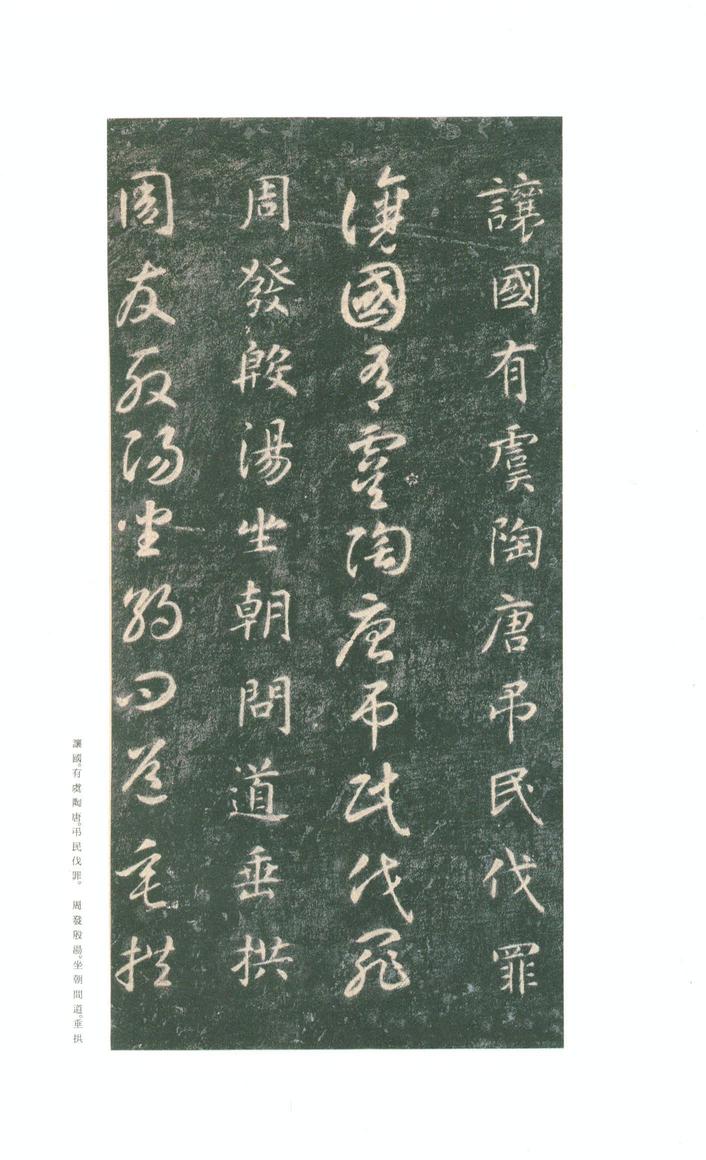 讓國有虞陶唐吊民伐罪
讓國有虞陶唐吊民伐罪
周發殷湯坐朝問道垂拱
周發殷湯坐朝問道垂拱
讓國。有虞陶唐。弔民伐罪。　周發殷湯。坐朝問道。垂拱